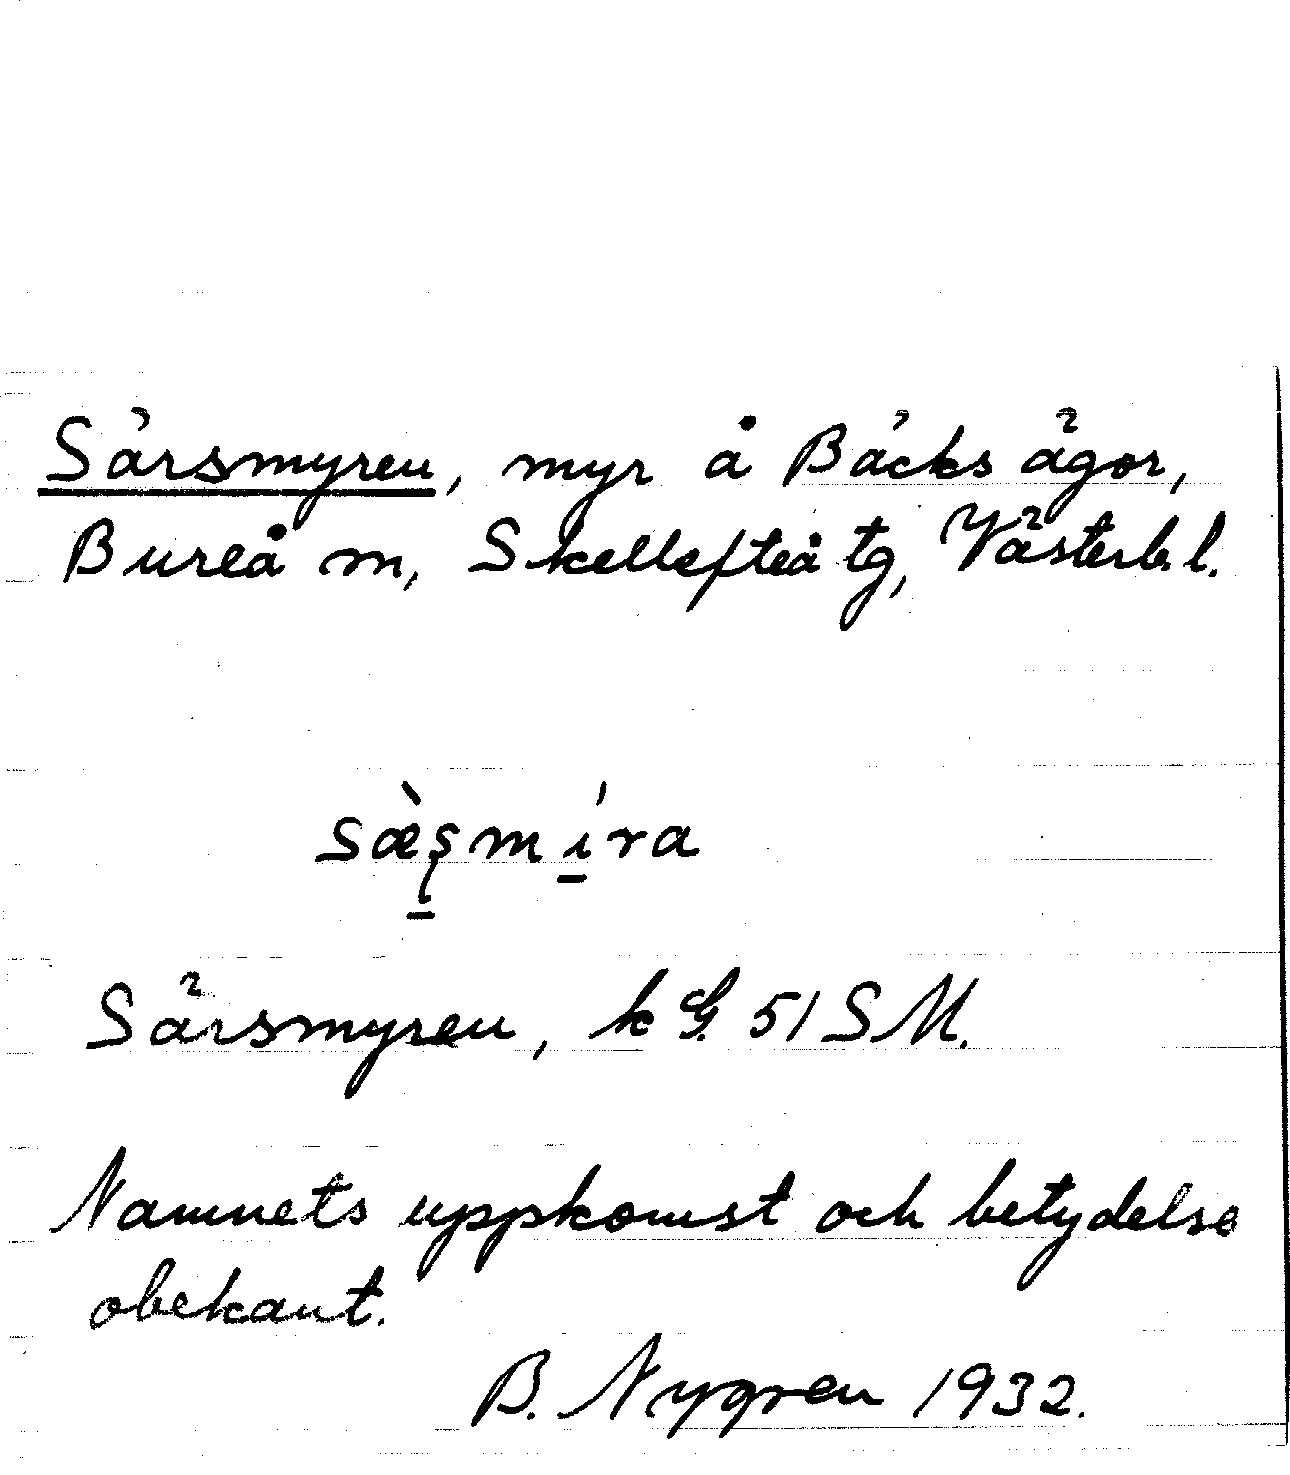 Särsmyren, myr å Bäcks ägor,
Bureå m, Skellefteå tg, Västerb. l.
sæ̀ʂmíra
Särsmyren, k G. 51 S M.
Namnets uppkomst och betydelse
obekant.
B. Nygren 1932.